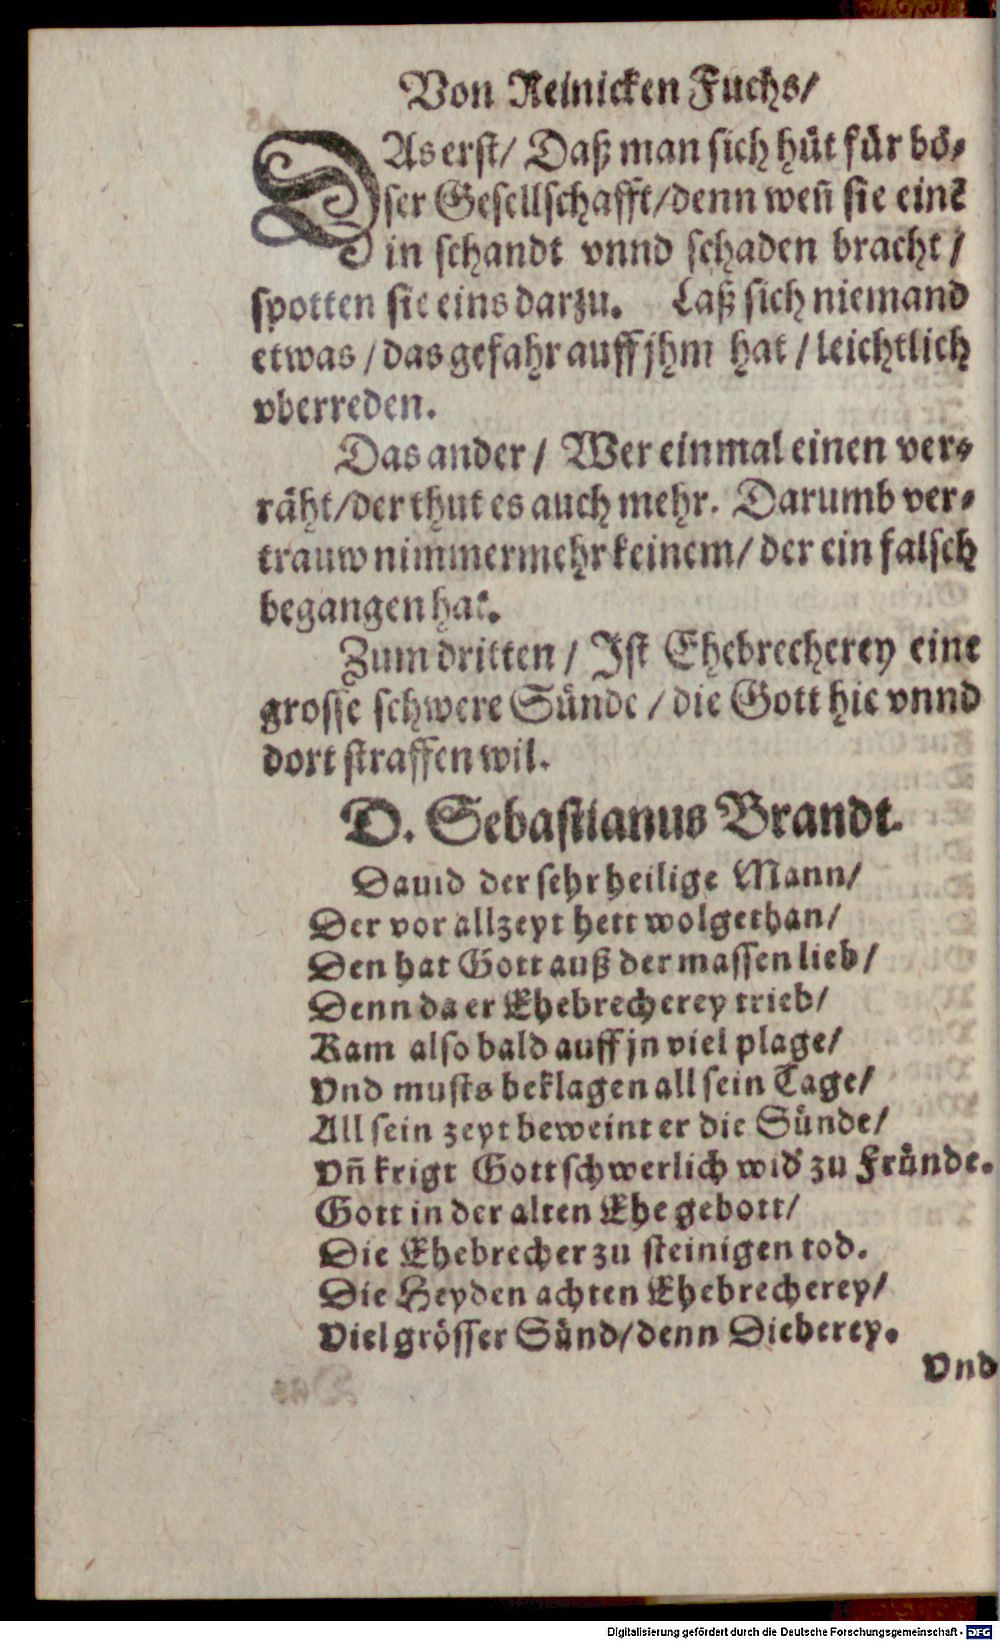 Von Reinicken Fuchs/
DAs erst/ Daß man sich hüt für bö-
ser Gesellschafft/denn weñ sie einẽ
in schandt vnnd schaden bracht/
spotten sie eins darzu. Laß sich niemand
etwas/das gefahr auff jhm hat/leichtlich
vberreden.
Das ander/ Wer einmal einen ver-
räht/der thut es auch mehr. Darumb ver-
trauw nimmermehr keinem/der ein falsch
begangen hat.
Zum dritten/ Ist Ehebrecherey eine
grosse schwere Sünde/die Gott hie vnnd
dort straffen wil.
D. Sebastianus Brandt.
Dauid der sehr heilige Mann/
Der vor allzeyt hett wolgethan/
Den hat Gott auß der massen lieb/
Denn da er Ehebrecherey trieb/
Kam also bald auff jn viel plage/
Vnd musts beklagen all sein Tage/
All sein zeyt beweint er die Sünde/
Vñ krigt Gott schwerlich wid' zu Fründe.
Gott in der alten Ehe gebott/
Die Ehebrecher zu steinigen tod.
Die Heyden achten Ehebrecherey/
Viel grösser Sünd/denn Dieberey.
Vnd
Digitalisierung gefördert durch die Deutsche Forschungsgemeinschaft - DFG